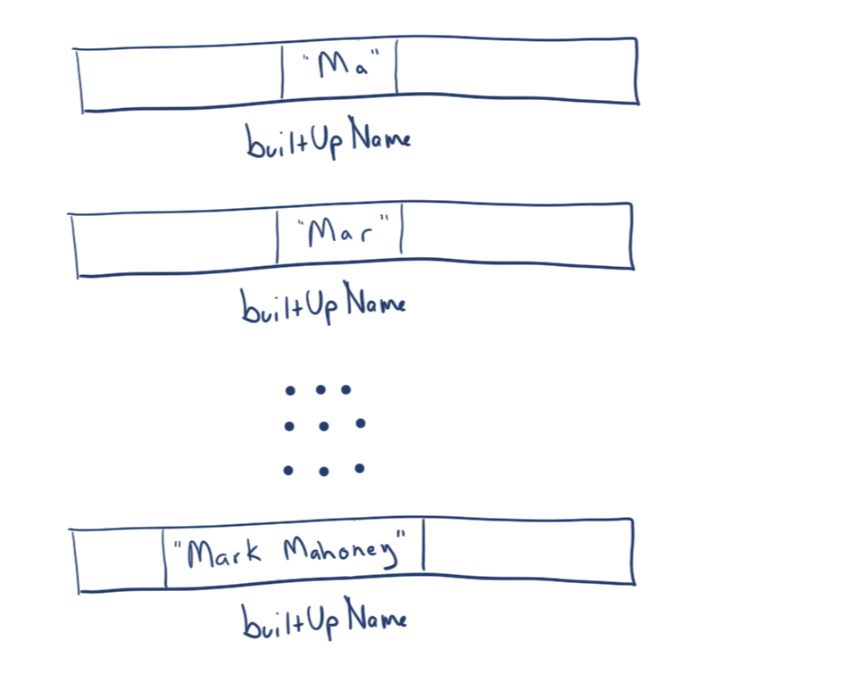 "Ma"
builtUpName
"Mar"
builtUpName
"Mark Mahoney"
builtUpName